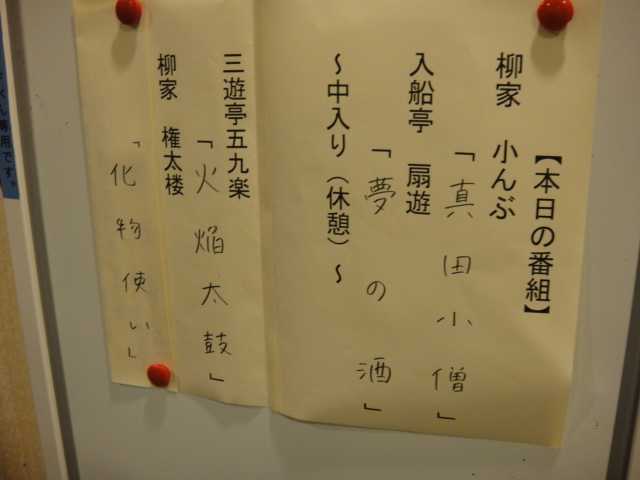 【本日の番組】
柳家 小んぶ
「真田小僧」
入船亭 扇遊
「夢の酒」
～中入り（休憩）～
三遊亭五九楽
「火焔太鼓」
柳家 権太楼
「化物使い」
専用です。